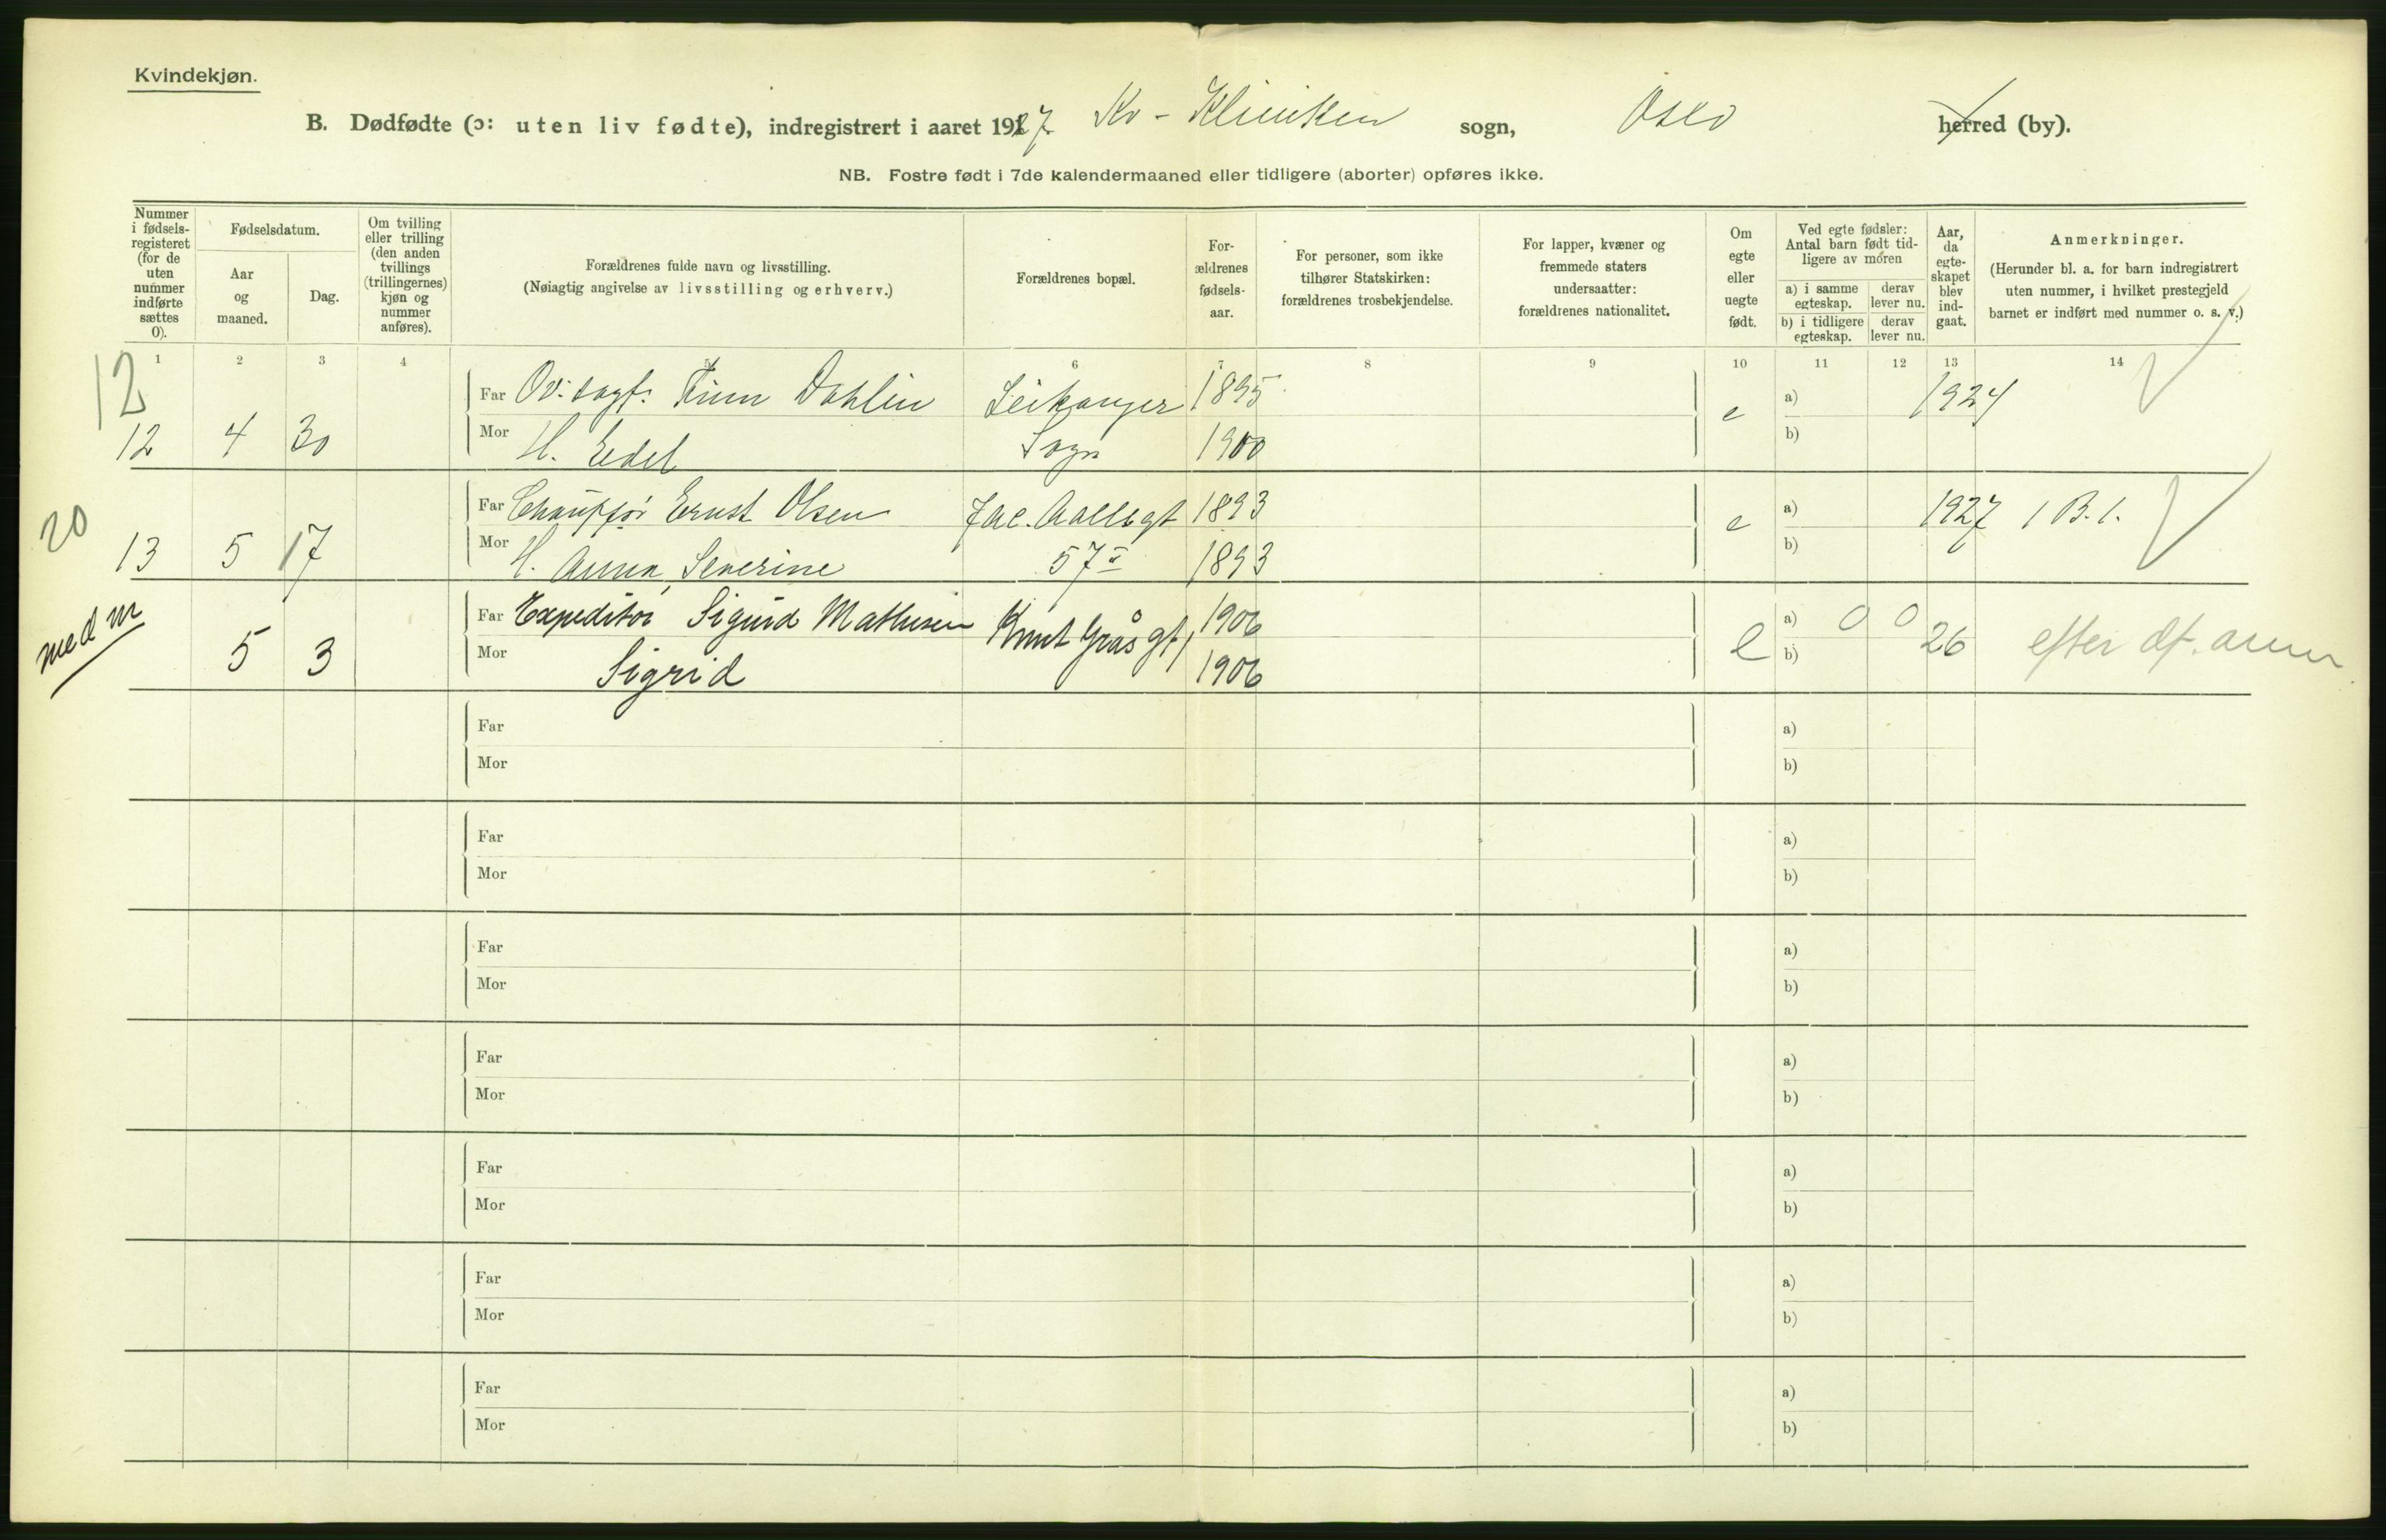 Kvindekjøn.
B. Dødfødte (ɔ: uten liv fødte), indregistrert i aaret 1927. Kv-Kliniken sogn, Oslo herred (by).
NB. Fostre født i 7de kalendermaaned eller tidligere (aborter) opføres ikke.
Nummer i fødsels-registeret (for de uten nummer indførte sættes 0).
Fødselsdatum.
Aar og maaned.
Dag.
Om tvilling eller trilling (den anden tvillings (trillingernes) kjøn og nummer anføres).
Forældrenes fulde navn og livsstilling.
(Nøiagtig angivelse av livsstilling og erhverv.)
Forældrenes bopæl.
For-ældrenes fødsels-aar.
For personer, som ikke tilhører Statskirken: forældrenes trosbekjendelse.
For lapper, kvæner og fremmede staters undersaatter: forældrenes nationalitet.
Om egte eller uegte født.
Ved egte fødsler: Antal barn født tid-ligere av moren
a) i samme egteskap.
derav lever nu.
b) i tidligere egteskap.
derav lever nu.
Aar, da egte-skapet blev ind-gaat.
Anmerkninger.
(Herunder bl. a. for barn indregistrert uten nummer, i hvilket prestegjeld barnet er indført med nummer o. s. v.)
1 2 3 4 5 6 7 8 9 10 11 12 13 14
12
Far Ov. sagf. Finn Dahlin Leikanger 1895 e a) 1924
12 4 30 Mor H. Edel Sogn 1900 b)
20
Far Chauffør Ernst Olsen Jac. Aallsgt 1893 e a) 1927 1 B. 1.
13 5 17 Mor H. Anna Severine 57 I 1893 b)
med nr
Far Expeditør Sigurd Mathisen Knut Gråsgt 1 1906 e a) 0 0 26 efter df. anm
5 3 Mor Sigrid 1906 b)
Far a)
Mor b)
Far a)
Mor b)
Far a)
Mor b)
Far a)
Mor b)
Far a)
Mor b)
Far a)
Mor b)
Far a)
Mor b)